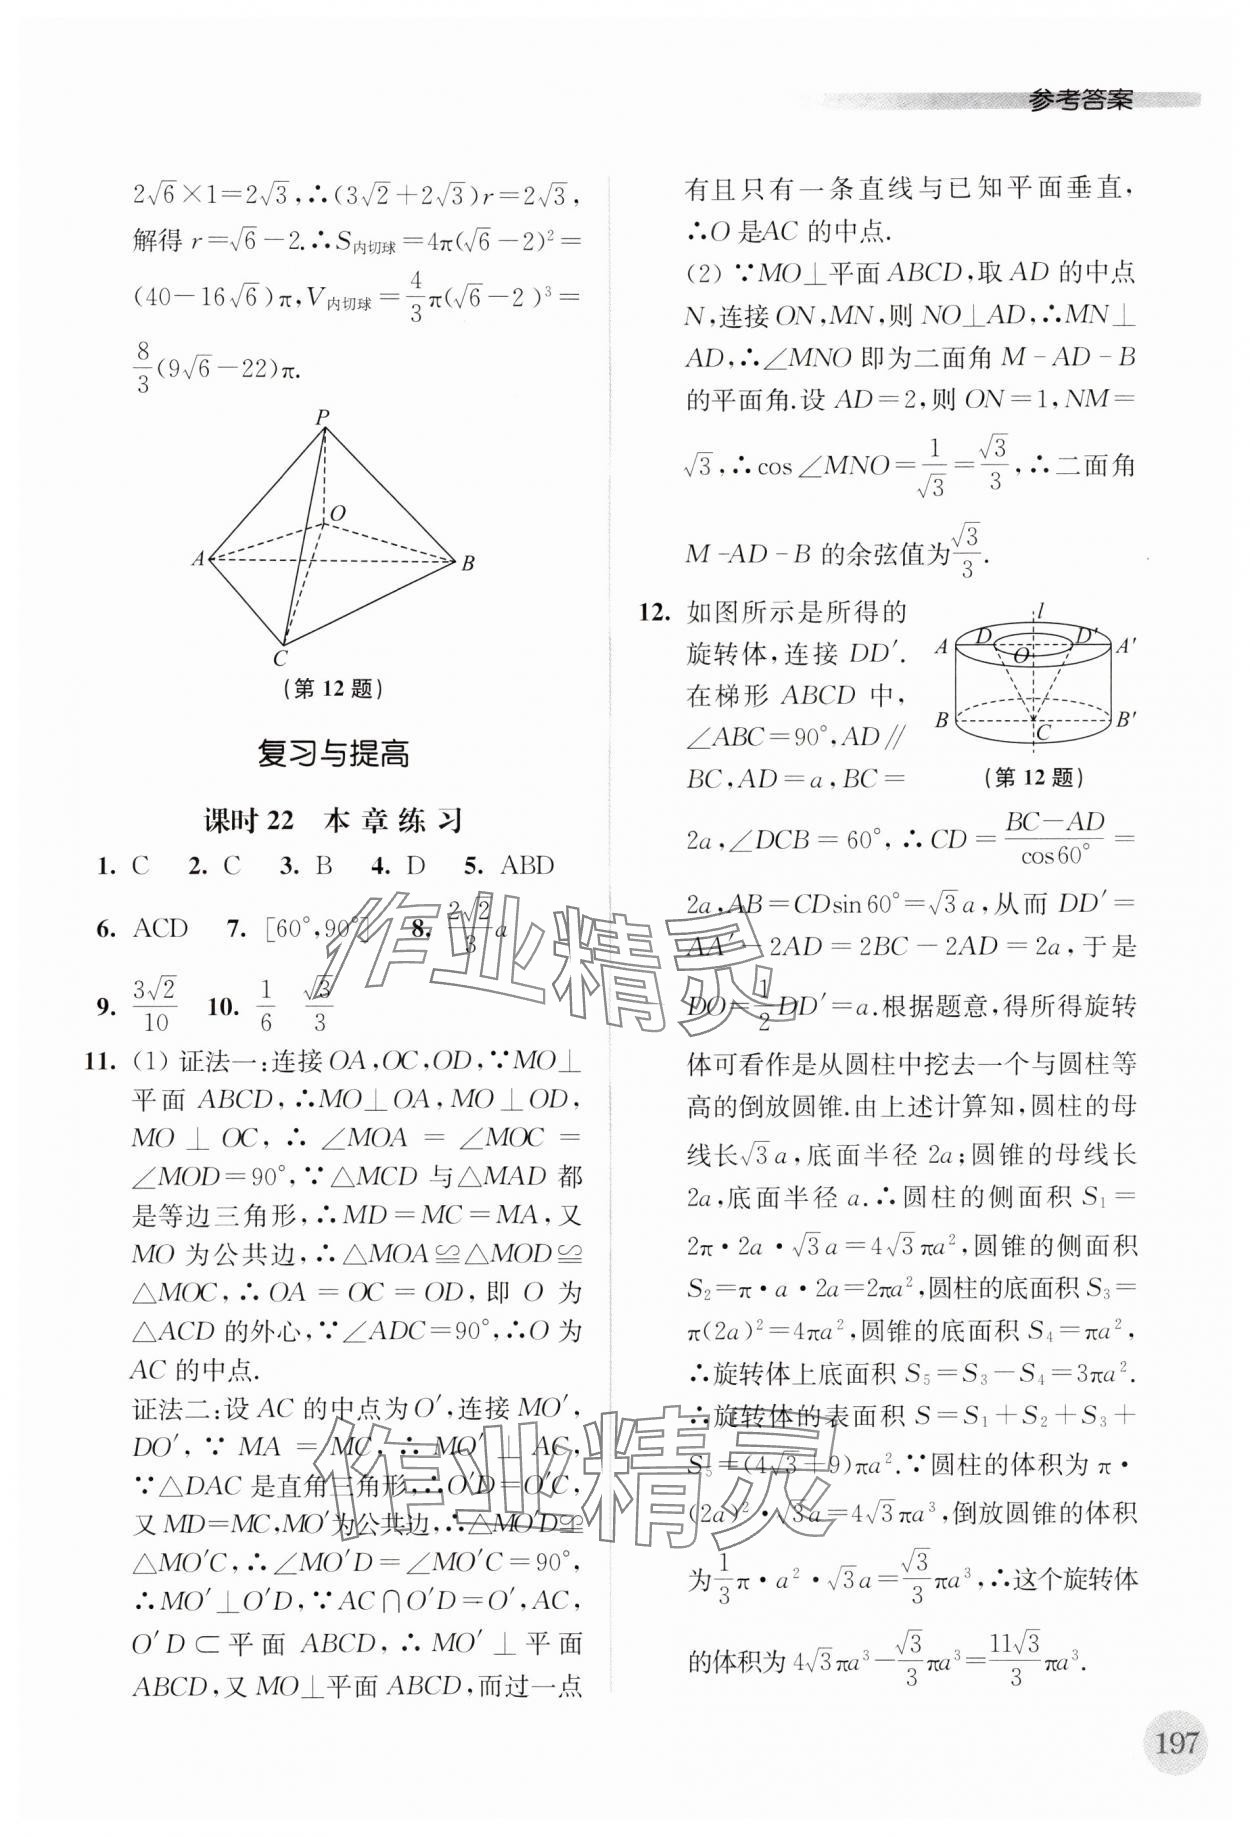 参考答案
2√6×1=2√3,∴(3√2+2√3)r=2√3,
解得 r=√6-2.∴S内切球=4π(√6-2)²=
(40-16√6)π,V内切球=4/3π(√6-2)³=
8/3(9√6-22)π.
P
O
A
B
C
(第12题)
复习与提高
课时22 本章练习
1. C 2. C 3. B 4. D 5. ABD
6. ACD 7. [60°,90°] 8. 2√2/3a
9. 3√2/10 10. 1/6 √3/3
11. (1) 证法一:连接OA,OC,OD,∵MO⊥
平面 ABCD,∴MO⊥OA,MO⊥OD,
MO⊥OC,∴∠MOA=∠MOC=
∠MOD=90°,∵△MCD与△MAD都
是等边三角形,∴MD=MC=MA,又
MO为公共边,∴△MOA≌△MOD≌
△MOC,∴OA=OC=OD,即O为
△ACD的外心,∵∠ADC=90°,∴O为
AC的中点.
证法二:设AC的中点为O′,连接MO′,
DO′,∵MA=MC,∴MO′⊥AC,
∵△DAC是直角三角形,∴O′D=O′C,
又MD=MC,MO′为公共边,∴△MO′D≌
△MO′C,∴∠MO′D=∠MO′C=90°,
∴MO′⊥O′D,∵AC∩O′D=O′,AC,
O′D⊂平面ABCD,∴MO′⊥平面
ABCD,又MO⊥平面ABCD,而过一点
有且只有一条直线与已知平面垂直,
∴O是AC的中点.
(2) ∵MO⊥平面ABCD,取AD的中点
N,连接ON,MN,则NO⊥AD,∴MN⊥
AD,∴∠MNO即为二面角M-AD-B
的平面角.设AD=2,则ON=1,NM=
√3,∴cos∠MNO=1/√3=√3/3,∴二面角
M-AD-B的余弦值为√3/3.
12. 如图所示是所得的
旋转体,连接DD′.
在梯形ABCD中,
∠ABC=90°,AD∥
BC,AD=a,BC=
l
A
D
D′
A′
O
B
C
B′
(第12题)
2a,∠DCB=60°,∴CD=BC-AD/cos60°=
2a,AB=CDsin60°=√3a,从而DD′=
AA′-2AD=2BC-2AD=2a,于是
DO=1/2DD′=a.根据题意,得所得旋转
体可看作是从圆柱中挖去一个与圆柱等
高的倒放圆锥.由上述计算知,圆柱的母
线长√3a,底面半径2a;圆锥的母线长
2a,底面半径a.∴圆柱的侧面积S₁=
2π·2a·√3a=4√3πa²,圆锥的侧面积
S₂=π·a·2a=2πa²,圆柱的底面积S₃=
π(2a)²=4πa²,圆锥的底面积S₄=πa²,
∴旋转体上底面积S₅=S₃-S₄=3πa².
∴旋转体的表面积S=S₁+S₂+S₃+
S₅=(4√3+9)πa².∵圆柱的体积为π·
(2a)²·√3a=4√3πa³,倒放圆锥的体积
为1/3π·a²·√3a=√3/3πa³,∴这个旋转体
的体积为4√3πa³-√3/3πa³=11√3/3πa³.
作业精灵
作业精灵
197